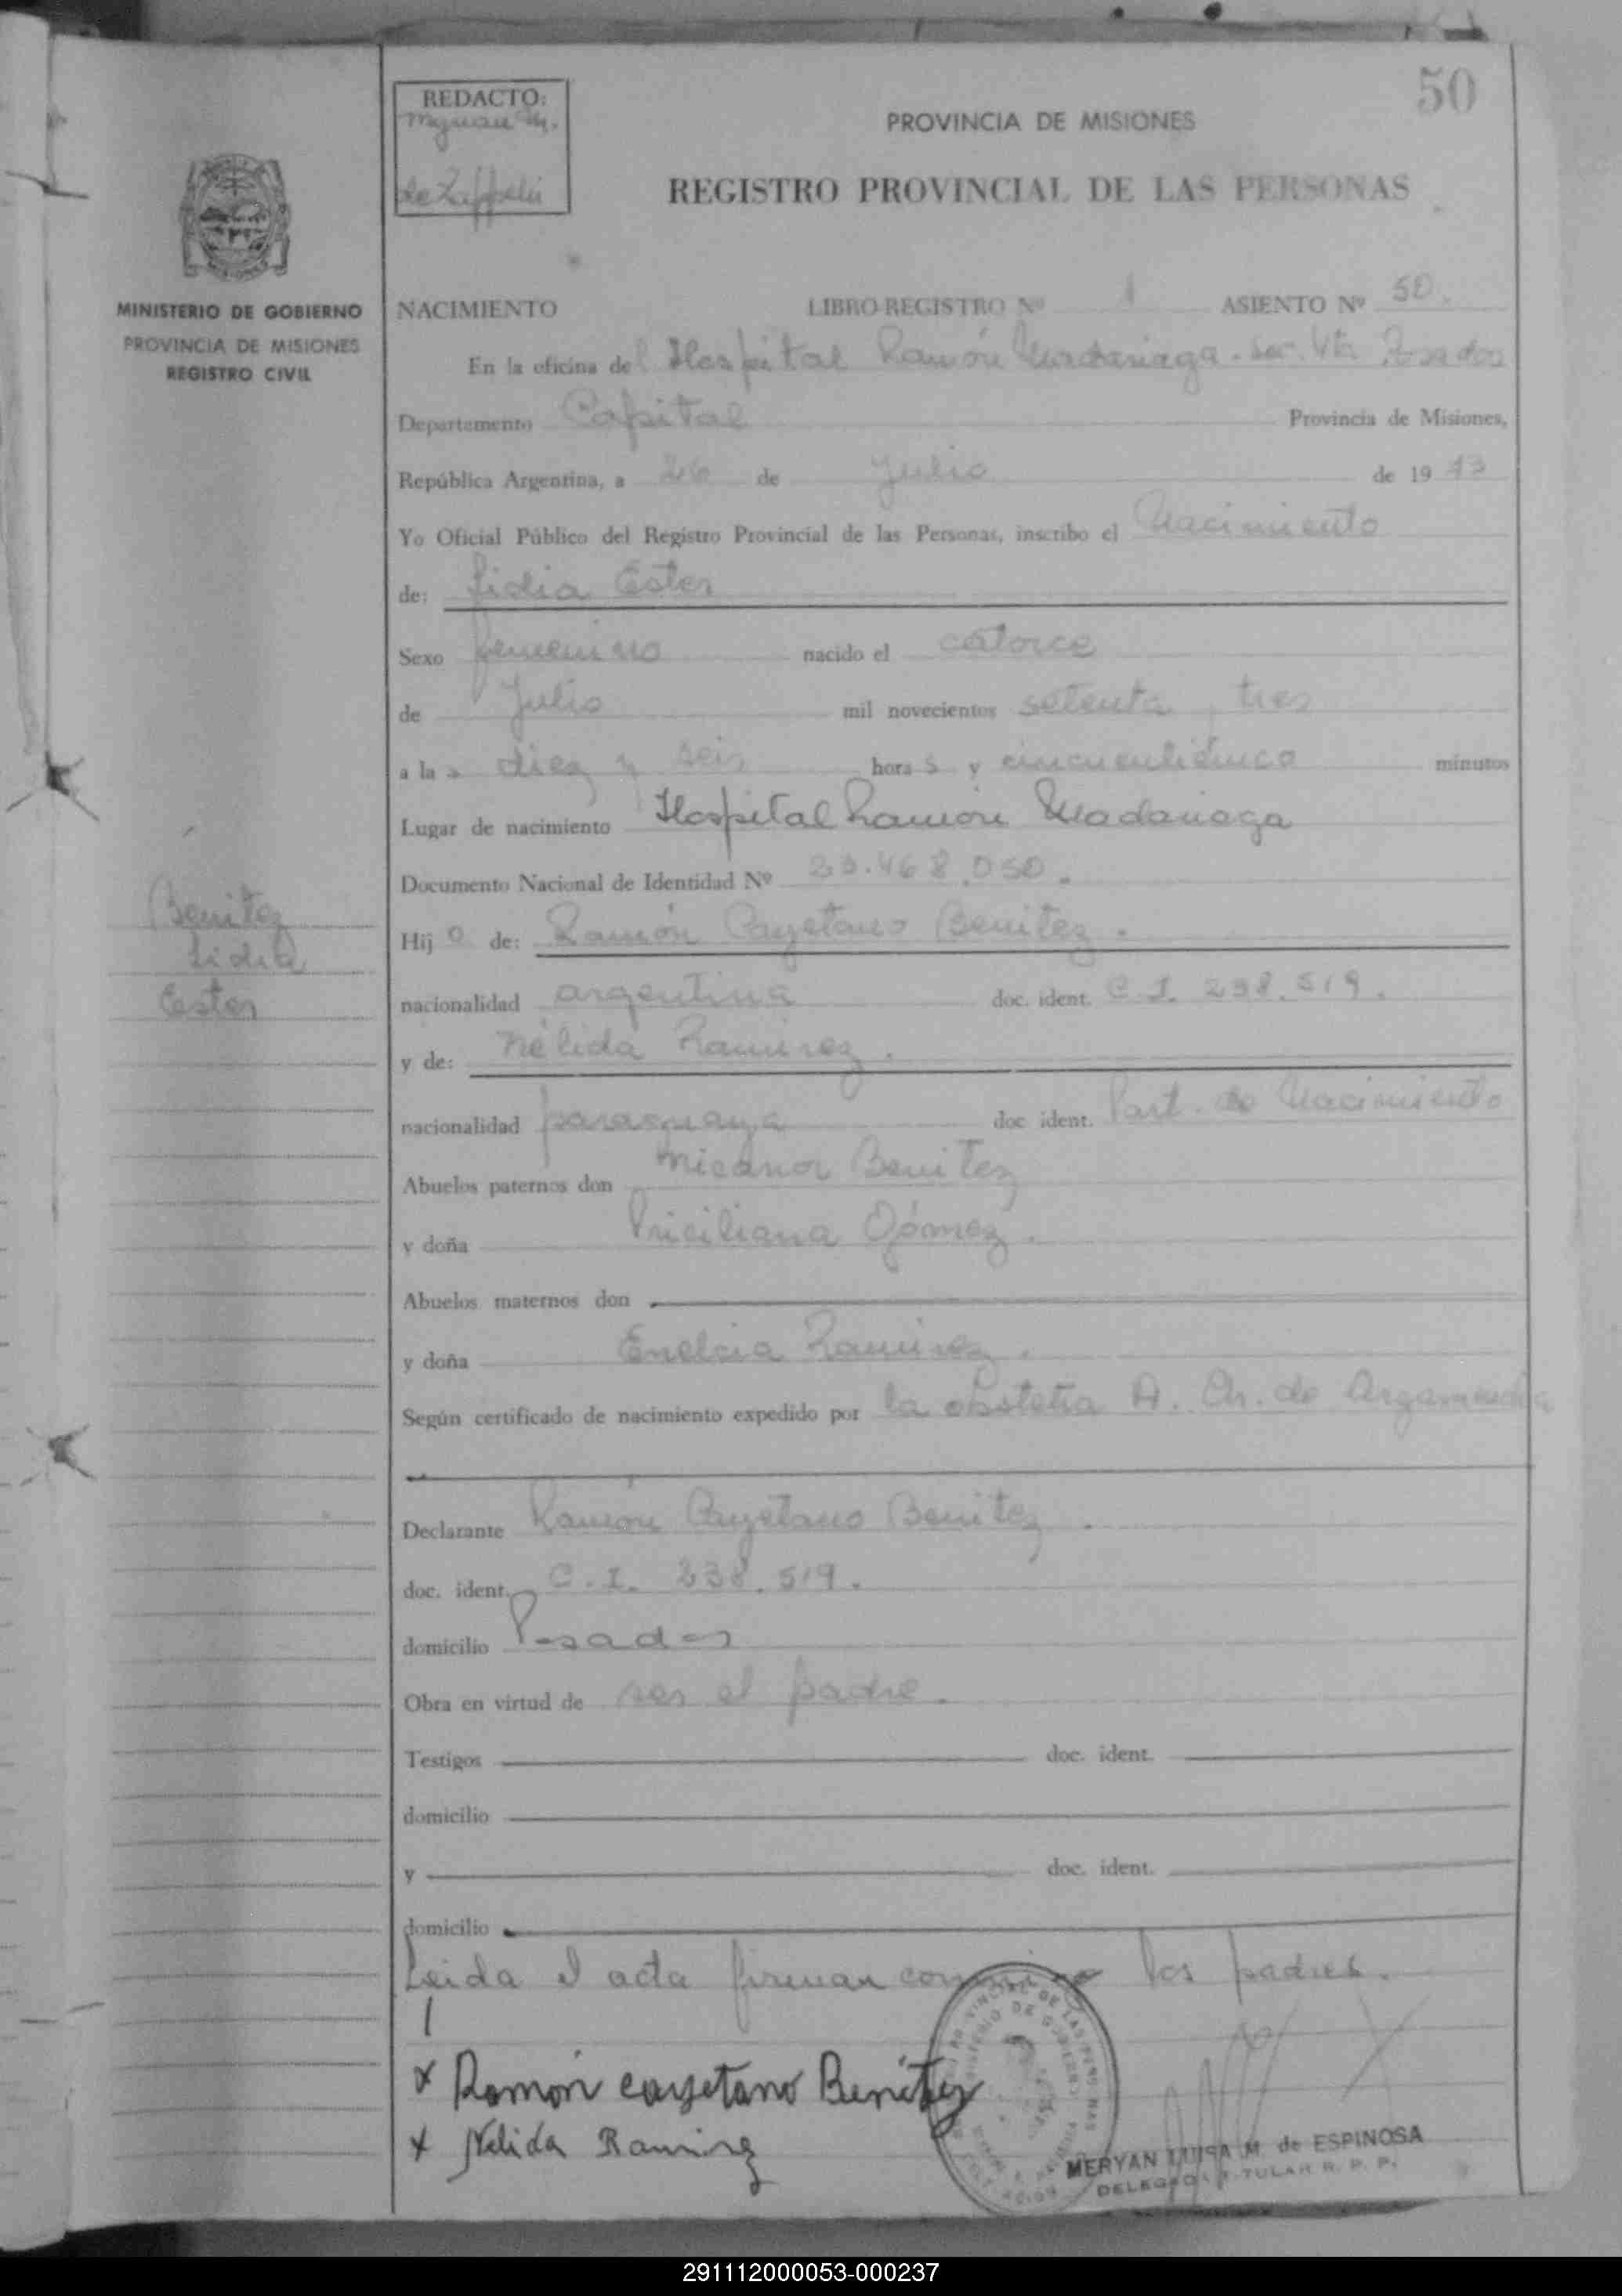 50
REDACTO:
Myrian M.
de Zappelli
PROVINCIA DE MISIONES
REGISTRO PROVINCIAL DE LAS PERSONAS
MINISTERIO DE GOBIERNO
PROVINCIA DE MISIONES
REGISTRO CIVIL
NACIMIENTO LIBRO REGISTRO Nº 1 ASIENTO Nº 50.
En la oficina del Hospital Ramón Madariaga. Sec. 4ta Posadas
Departamento Capital Provincia de Misiones,
República Argentina, a 26 de Julio de 1973
Yo Oficial Público del Registro Provincial de las Personas, inscribo el Nacimiento
de: Lidia Ester
Sexo femenino nacido el catorce
de Julio mil novecientos setenta y tres
a las diez y seis horas y cincuenticinco minutos
Lugar de nacimiento Hospital Ramón Madariaga
Documento Nacional de Identidad Nº 23.468.050.
Benitez
Lidia
Ester
Hija de: Ramón Cayetano Benitez.
nacionalidad argentina doc. ident. C.I. 238.519.
y de: Nélida Ramirez.
nacionalidad paraguaya doc ident. Part. de Nacimiento
Abuelos paternos don Nicanor Benitez
y doña Priciliana Gómez.
Abuelos maternos don
y doña Enelcia Ramirez.
Según certificado de nacimiento expedido por la obstetra A. Ch. de
Declarante Ramón Cayetano Benitez.
doc. ident. C.I. 238.519.
domicilio Posadas
Obra en virtud de ser el padre.
Testigos doc. ident.
domicilio
y doc. ident.
domicilio
Leida el acta firman conmigo los padres.
x Ramon cayetano Benitez
x Nelida Ramirez
MERYAN LUISA M. de ESPINOSA
DELEGADA TITULAR R. P. P.
291112000053-000237